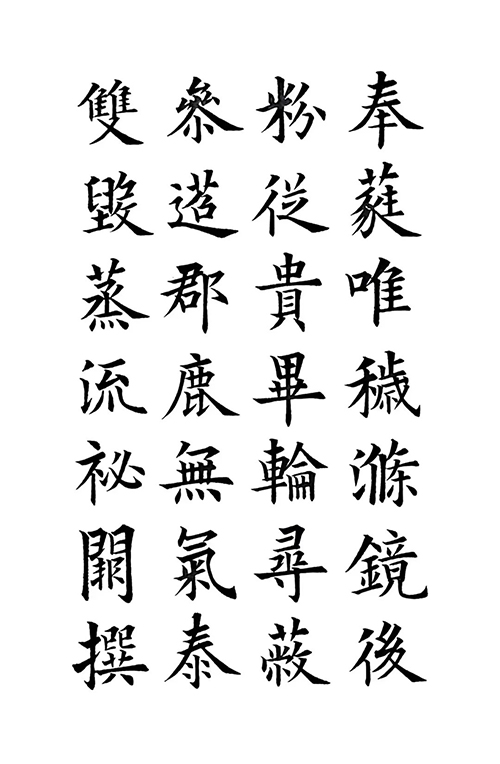 奉蕤唯穢滌鏡後
粉從貴畢輪尋蔽
參遝郡鹿無氣泰
雙毀蒸流祕關撰